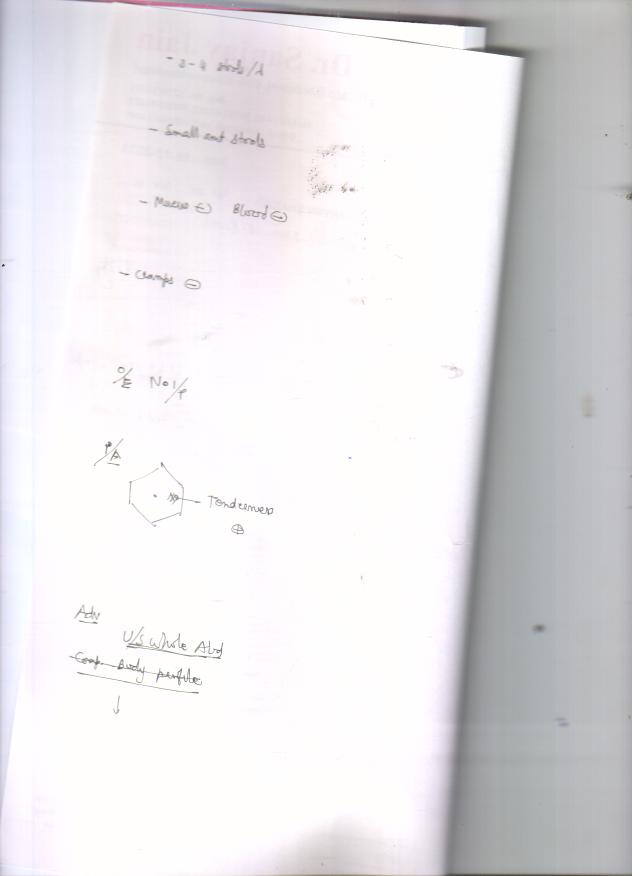 - 3-4 stools/d
- Small amt stools
- Mucus ⊖ Blood ⊖
- Cramps ⊖
O/E
P/A
Tenderness
⊕
Adv
U/S Whole Abd
Comp. Body profile
↓